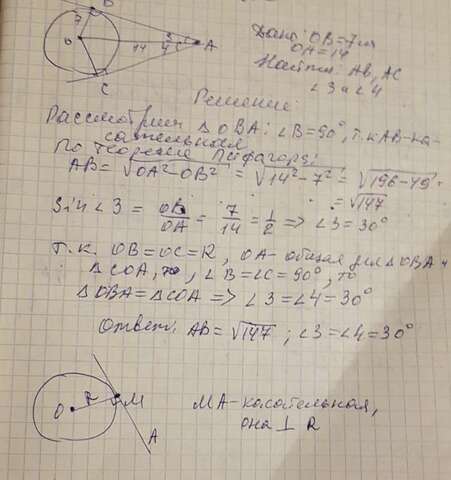 B
7
O
14
3
4
A
C
Дано: OB=7см
OA=14
Найти: AB, AC
∠3 и ∠4
Решение:
Рассмотрим △OBA: ∠B=90°, т.к AB-ка-
сательная
По теореме Пифагора:
AB= √OA²-OB² = √14²-7² = √196-49 =
= √147
Sin∠3 = OB/OA = 7/14 = 1/2 => ∠3=30°
Т.к. OB=OC=R, OA- общая для △OBA и
△COA, ∠B=∠C=90°, то
△OBA=△COA => ∠3=∠4=30°
Ответ: AB=√147 ; ∠3=∠4=30°
O
R
M
A
MA-касательная,
она ⊥ R